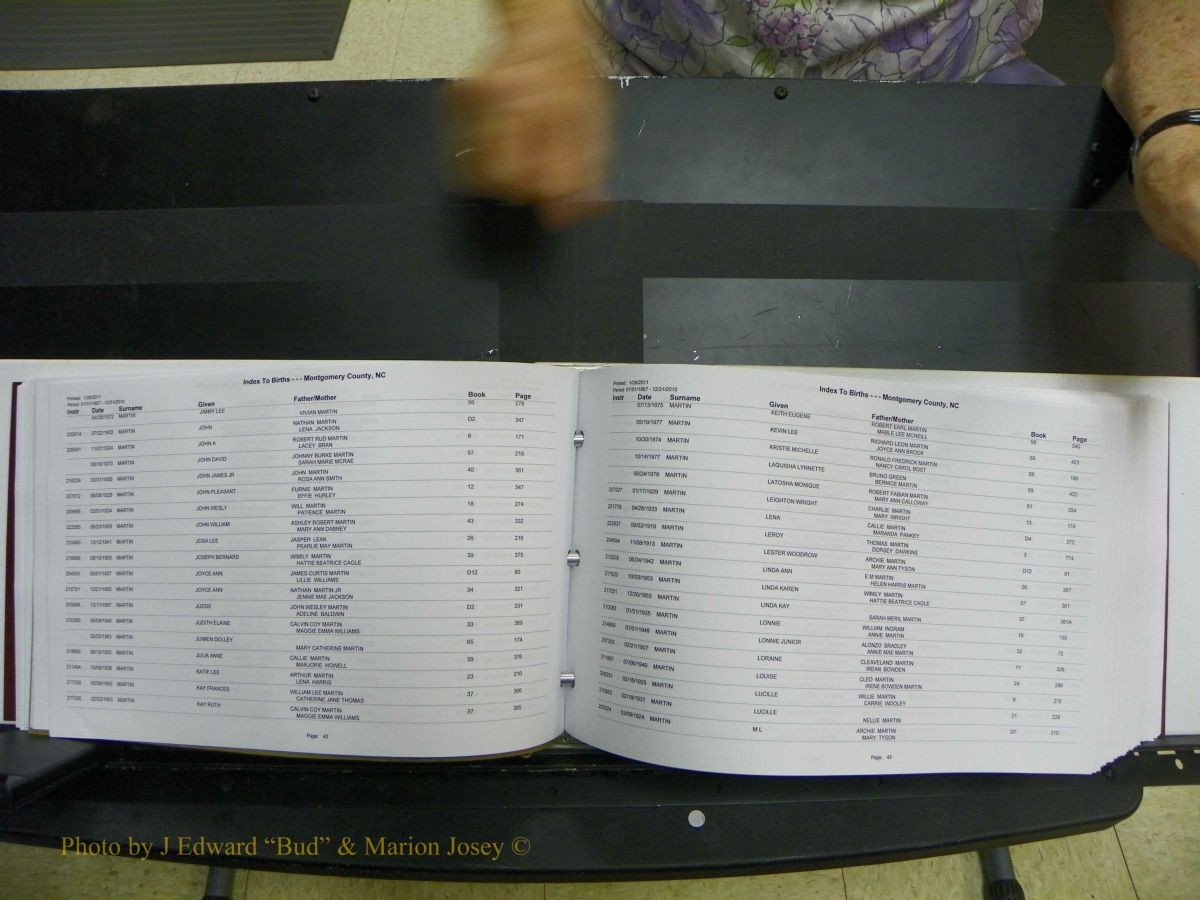 Index To Births - - - Montgomery County, NC
Printed: 1/26/2011
Period: 01/01/1867 - 12/31/2010
Instr Date Surname Given Father/Mother Book Page
MARTIN JIMMY LEE VIVIAN MARTIN 56 278
07/02/1902 MARTIN JOHN NATHAN MARTIN D2 347
LENA JACKSON
11/07/1924 MARTIN JOHN A ROBERT RUD MARTIN 8 171
LACEY BRAN
MARTIN JOHN DAVID JOHNNY BURKE MARTIN 57 218
SARAH MARIE MCRAE
MARTIN JOHN JAMES JR JOHN MARTIN 40 361
ROSA ANN SMITH
MARTIN JOHN PLEASANT FURNIE MARTIN 12 347
EFFIE HURLEY
MARTIN JOHN WESLY WILL MARTIN 18 274
PATIENCE MARTIN
MARTIN JOHN WILLIAM ASHLEY ROBERT MARTIN 43 332
MARY ANN DABNEY
MARTIN JOSA LEE JASPER LEAK 26 216
PEARLIE MAY MARTIN
MARTIN JOSEPH BERNARD WIMILY MARTIN 39 375
HATTIE BEATRICE CAGLE
MARTIN JOYCE ANN JAMES CURTIS MARTIN D12 80
LILLIE WILLIAMS
MARTIN JOYCE ANN NATHAN MARTIN JR 34 321
JENNIE MAE JACKSON
MARTIN JUDGE JOHN WESLEY MARTIN D2 331
ADELINE BALDWIN
MARTIN JUDITH ELAINE CALVIN COY MARTIN 33 369
MAGGIE EMMA WILLIAMS
MARTIN JUIMEN DOLLEY 65 174
MARY CATHERINE MARTIN
MARTIN JULIA ANNE CALLIE MARTIN 39 376
MARJORIE HOWELL
MARTIN KATIE LEE ARTHUR MARTIN 23 210
LENA HARRIS
MARTIN KAY FRANCES WILLIAM LEE MARTIN 37 366
CATHERINE JANE THOMAS
MARTIN KAY RUTH CALVIN COY MARTIN 37 365
MAGGIE EMMA WILLIAMS
Page: 42
Index To Births - - - Montgomery County, NC
Printed: 1/26/2011
Period: 01/01/1867 - 12/31/2010
Instr Date Surname Given Father/Mother Book Page
07/13/1975 MARTIN KEITH EUGENE ROBERT EARL MARTIN 58 540
MABLE LEE MCNEILL
05/19/1977 MARTIN KEVIN LEE RICHARD LEON MARTIN 59 423
JOYCE ANN BROCK
10/30/1974 MARTIN KRISTIE MICHELLE RONALD FREDRICK MARTIN 58 196
NANCY CAROL BOST
10/14/1977 MARTIN LAQUISHA LYNNETTE BRUNO GREEN 59 422
BERNICE MARTIN
08/24/1979 MARTIN LATOSHA MONIQUE ROBERT FABIAN MARTIN 61 054
MARY ANN CALLOWAY
01/17/1929 MARTIN LEIGHTON WRIGHT CHARLIE MARTIN 13 174
MARY WRIGHT
201778 04/28/1933 MARTIN LENA CALLIE MARTIN D4 272
MARANDA PANKEY
09/03/1919 MARTIN LEROY THOMAS MARTIN 3 774
DORSEY DAWKINS
11/08/1913 MARTIN LESTER WOODROW ARCHIE MARTIN D12 81
MARY ANN TYSON
MARTIN LINDA ANN E M MARTIN 26 267
HELEN HARRIS MARTIN
10/03/1953 MARTIN LINDA KAREN WIMILY MARTIN 37 361
HATTIE BEATRICE CAGLE
12/26/1953 MARTIN LINDA KAY 37 361A
SARAH MERIL MARTIN
01/21/1935 MARTIN LONNIE WILLIAM INGRAM 19 150
ANNIE MARTIN
01/01/1948 MARTIN LONNIE JUNIOR ALONZO BRADLEY 32 72
ANNIE MAE MARTIN
02/21/1927 MARTIN LORAINE CLEAVELAND MARTIN 11 329
IREAN BOWDEN
07/06/1940 MARTIN LOUISE CLED MARTIN 24 286
IRENE BOWDEN MARTIN
02/16/1925 MARTIN LUCILLE WILLIE MARTIN 9 275
CARRIE WOOLEY
02/18/1937 MARTIN LUCILLE 21 228
NELLIE MARTIN
03/09/1924 MARTIN M L ARCHIE MARTIN D7 210
MARY TYSON
Page: 43
Photo by J Edward “Bud” & Marion Josey ©